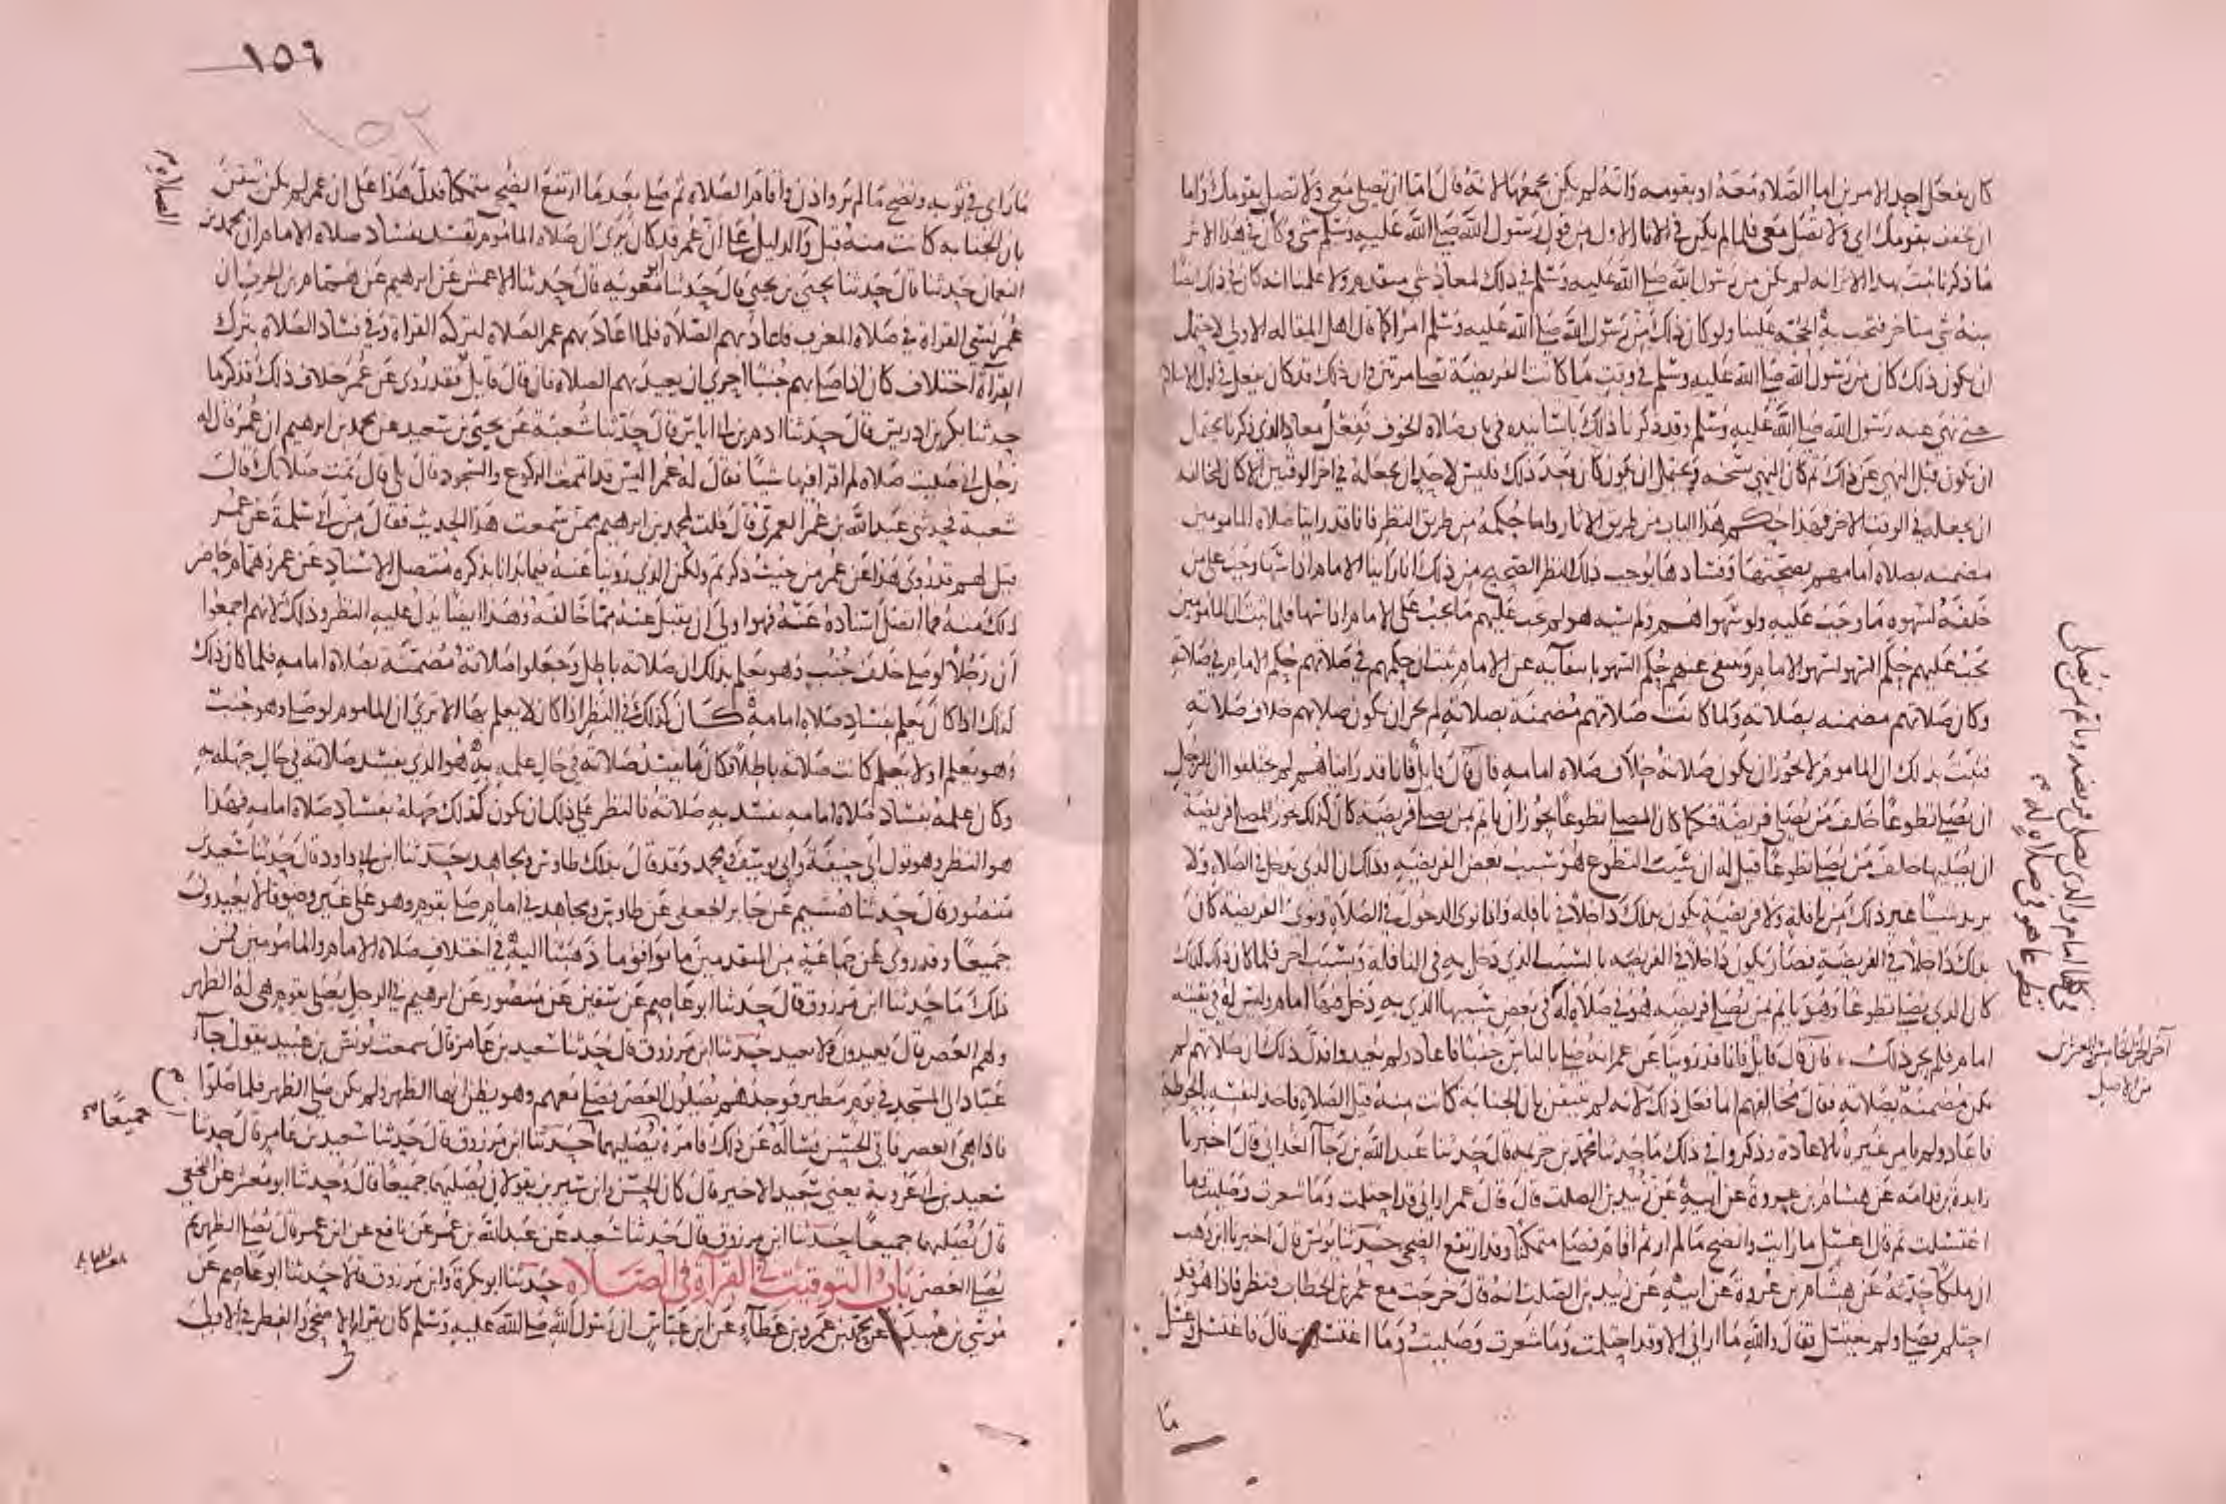 كان يفعل احد الامرين اما الصلاه معه او بقومه وانه لم يكن يجمعها لانه قال اما ان تصلي معي اي ولا تصل بقومك واما
ان تخفف بقومك اي ولا تصل معي فلما لم يكن في الاثار الاول من قول رسول الله صلى الله عليه وسلم شي وكان في هذا الاثر
ما ذكرنا ثبت بهذا الاثر انه لم يكن من رسول الله صلى الله عليه وسلم في ذلك لمعاذ شي متقدم ولا علمنا انه كان في ذلك ايضا
منه شي متاخر فتجب به الحجه علينا ولو كان ذلك من رسول الله صلى الله عليه وسلم امرا كما قال اهل المقاله الاولى لاحتمل
ان يكون ذلك كان من رسول الله صلى الله عليه وسلم في وقت ما كانت الفريضة تصلى مرتين فان ذلك قد كان يفعل في اول الاسلام
حتى نهى عنه رسول الله صلى الله عليه وسلم وقد ذكرنا ذلك باسانيده في باب صلاة الخوف ففعل معاذ الذي ذكرنا يحتمل
ان يكون قبل النهي عن ذلك ثم كان النهي نسخه ويحتمل ان يكون كان بعد ذلك فليس لاحد ان يجعله في احد الوقتين الا كان لمخالفه
ان يجعله في الوقت الاخر فهذا حكم هذا الباب من طريق الاثار واما حكمه من طريق النظر فانا قد راينا صلاه المامومين
مضمنه بصلاه امامهم بصحتها وفسادها يوجب ذلك النظر الصحيح من ذلك انا راينا الامام اذا سها وجب على من
خلفه لسهوه ما وجب عليه ولو سهوا هم ولم يسه هو لم يجب عليهم ما يجب على الامام اذا سها فلما ثبت ان المامومين
يجب عليهم حكم السهو لسهو الامام وينتفي عنهم حكم السهو بانتفائه عن الامام ثبت ان حكمهم في صلاتهم حكم الامام في صلاته
وكان صلاتهم مضمنه بصلاته ولما كانت صلاتهم مضمنة بصلاته لم يجز ان يكون صلاتهم خلاف صلاته
فثبت بذلك ان الماموم لا يجوز ان يكون صلاته خلاف صلاه امامه فان قال قايل فانا قد رايناهم لم يختلفوا ان للرجل
ان يصلي تطوعا خلف من يصلي فريضة فكما كان المصلي تطوعا يجوز ان ياتم بمن يصلي فريضة كان كذلك يجوز للمصلي فريضة
ان يصليها خلف من يصلي تطوعا قيل له ان سبب التطوع هو سبب بعض الفريضه وذلك ان الذي يدخل في الصلاه ولا
يريد شيئا غير ذلك من نافله ولا فريضة يكون بذلك داخلا في نافله واذا نوى الدخول في الصلاة ونوى الفريضه كان
بذلك داخلا في الفريضة فصار يكون داخلا في الفريضه بالسبب الذي دخل به في النافلة وبسبب اخر فلما كان ذلك كذلك
كان الذي يصلي تطوعا وهو ياتم بمن يصلي فريضه هو في صلاة له في بعض سببها الذي به دخل فيها امام وليس له في بقيته
امام فلم يجز ذلك فان قال قائل فانا قد روينا عن عمر انه صلى بالناس جنبا فاعاد ولم يعيدوا فدل ذلك ان صلاتهم لم
تكن مضمنة بصلاته فقال مخالفهم انما فعل ذلك لانه لم يتيقن بان الجنابة كانت منه قبل الصلاه فاخذ لنفسه بالحوطه
فاعاد ولم يامر غيره بالاعادة وذكروا في ذلك ما حدثنا محمد بن خزيمه قال حدثنا عبد الله بن رجا الغداني قال اخبرنا
زايدة بن قدامه عن هشام بن عروة عن ابيه عن زييد بن الصلت قال قال عمر اراني قد احتلمت وما شعرت وصليت وما
اغتسلت ثم قال اغسل ما رايت وانضح ما لم ار ثم اقام فصلى متمكنا وقد ارتفع الضحى حدثنا يونس قال اخبرنا ابن وهب
ان ملكا حدثه عن هشام بن عروة عن ابيه عن زييد بن الصلت انه قال خرجت مع عمر بن الخطاب فنظر فاذا هو قد
احتلم فصلى ولم يغتسل فقال والله ما اراني الا وقد احتلمت وما شعرت وصليت وما اغتسلت قال فاغتسل وغسل
ما
آخر الجزء الخامس والعشرين
من الاصل
١٥٦
١٥٢
ما راى في ثوبه ونضح ما لم يره واذن واقام الصلاه ثم صلى بعد ما ارتفع الضحى متمكنا فدل هذا على ان عمر لم يكن تيقن
بان الجنابه كانت منه قبل والدليل على ان عمر قد كان يرى ان صلاة الماموم تفسد بفساد صلاه الامام ان محمد بن
النعمان حدثنا قال حدثنا يحيى بن يحيى قال حدثنا ابو معويه قال حدثنا الاعمش عن ابرهيم عن همام بن الحرث ان
عمر نسي القراه في صلاه المغرب فاعاد بهم الصلاة فلما اعاد بهم عمر الصلاه لتركه القراة وفي فساد الصلاه بترك
القرآة اختلاف كان اذا صلى بهم جنبا احرى ان يعيد بهم الصلاه فان قال قايل فقد روي عن عمر خلاف ذلك فذكر ما
حدثنا بكر بن ادريس قال حدثنا ادم بن ابي اياس قال حدثنا شعبة عن يحيى بن سعيد عن محمد بن ابرهيم ان عمر قال له
رجل اني صليت صلاه لم اقرا فيها شيئا فقال له عمر اليس قد اتممت الركوع والسجود قال بلى قال تمت صلاتك قال
شعبة فحدثني عبد الله بن عمر العمري قال قلت لمحمد بن ابرهيم ممن سمعت هذا الحديث فقال من ابي سلمة عن عمر
قيل لهم قد روي هذا عن عمر من حيث ذكرتم ولكن الذي روينا عنه فيما بدانا بذكره متصل الاسناد عن عمر وهمام حاضر
ذلك منه فما اتصل اسناده عنه فهو اولى ان يقبل عنه مما خالفه وهذا ايضا يدل عليه النظر وذلك لانهم اجمعوا
ان رجلا لو صلى خلف جنب وهو يعلم بذلك ان صلاته باطل وجعلوا صلاته مضمنة بصلاه امامه فلما كان ذلك
كذلك اذا كان يعلم بفساد صلاه امامه كان كذلك في النظر اذا كان لا يعلم بها الا ترى ان الماموم لو صلى وهو جنب
وهو يعلم او لا يعلم كانت صلاته باطلة فكان ما يفسد صلاته في حال علمه به هو الذي يفسد صلاته في حال جهله به
وكان علمه بفساد صلاه امامه يفسد به صلاته فالنظر على ذلك ان يكون كذلك جهله بفساد صلاه امامه فهذا
هو النظر وهو قول ابي حنيفة وابي يوسف ومحمد وقد قال بذلك طاوس ومجاهد حدثنا ابن ابي داود قال حدثنا سعيد بن
منصور قال حدثنا هشيم عن جابر الجعفي عن طاوس ومجاهد في امام صلى بقوم وهو على غير وضو قالا يعيدون
جميعا وقد روي عن جماعة من المتقدمين ما يوافق ما ذهبنا اليه في اختلاف صلاه الامام والمامومين فمن
ذلك ما حدثنا ابن مرزوق قال حدثنا ابو عاصم عن سفين عن منصور عن ابرهيم في الرجل يصلي بقوم هي له الظهر
ولهم العصر قال يعيدون ولا يعيد حدثنا ابن مرزوق قال حدثنا سعيد بن عامر قال سمعت يونس بن عبيد يقول جاء
عباد الى المسجد في يوم مطير فوجدهم يصلون العصر فصلى معهم وهو يظن انها الظهر ولم يكن صلى الظهر فلما صلوا
فاذا هي العصر فاتى الحسن فساله عن ذلك فامره ان يصليهما حدثنا ابن مرزوق قال حدثنا سعيد بن عامر قال حدثنا
جميعا
سعيد بن ابي عروبة يعني سعيد الاخير قال كان الحسن وابن سيرين يقولان يصليهما جميعا قال وحدثنا ابو معشر عن النخعي
قال يصليهما جميعا حدثنا ابن مرزوق قال حدثنا سعيد عن عبد الله بن عمر عن نافع عن ابن عمر قال يصلي الظهر ثم
يصلي العصر باب التوقيت في القرآة في الصلاه حدثنا ابو بكرة وابن مرزوق قالا حدثنا ابو عاصم عن
موسى بن عبيدة عن محمد بن عمرو بن عطاء عن ابن عباس ان رسول الله صلى الله عليه وسلم كان يقرا في الاضحى والفطر في الاولى